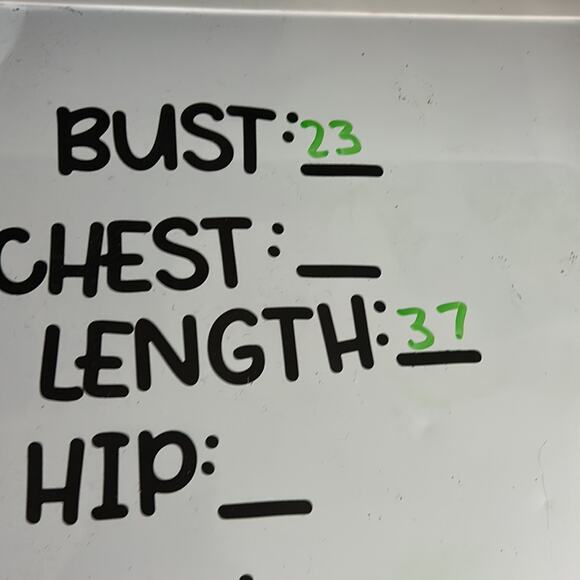 BUST: 23
CHEST: _
LENGTH: 37
HIP: _